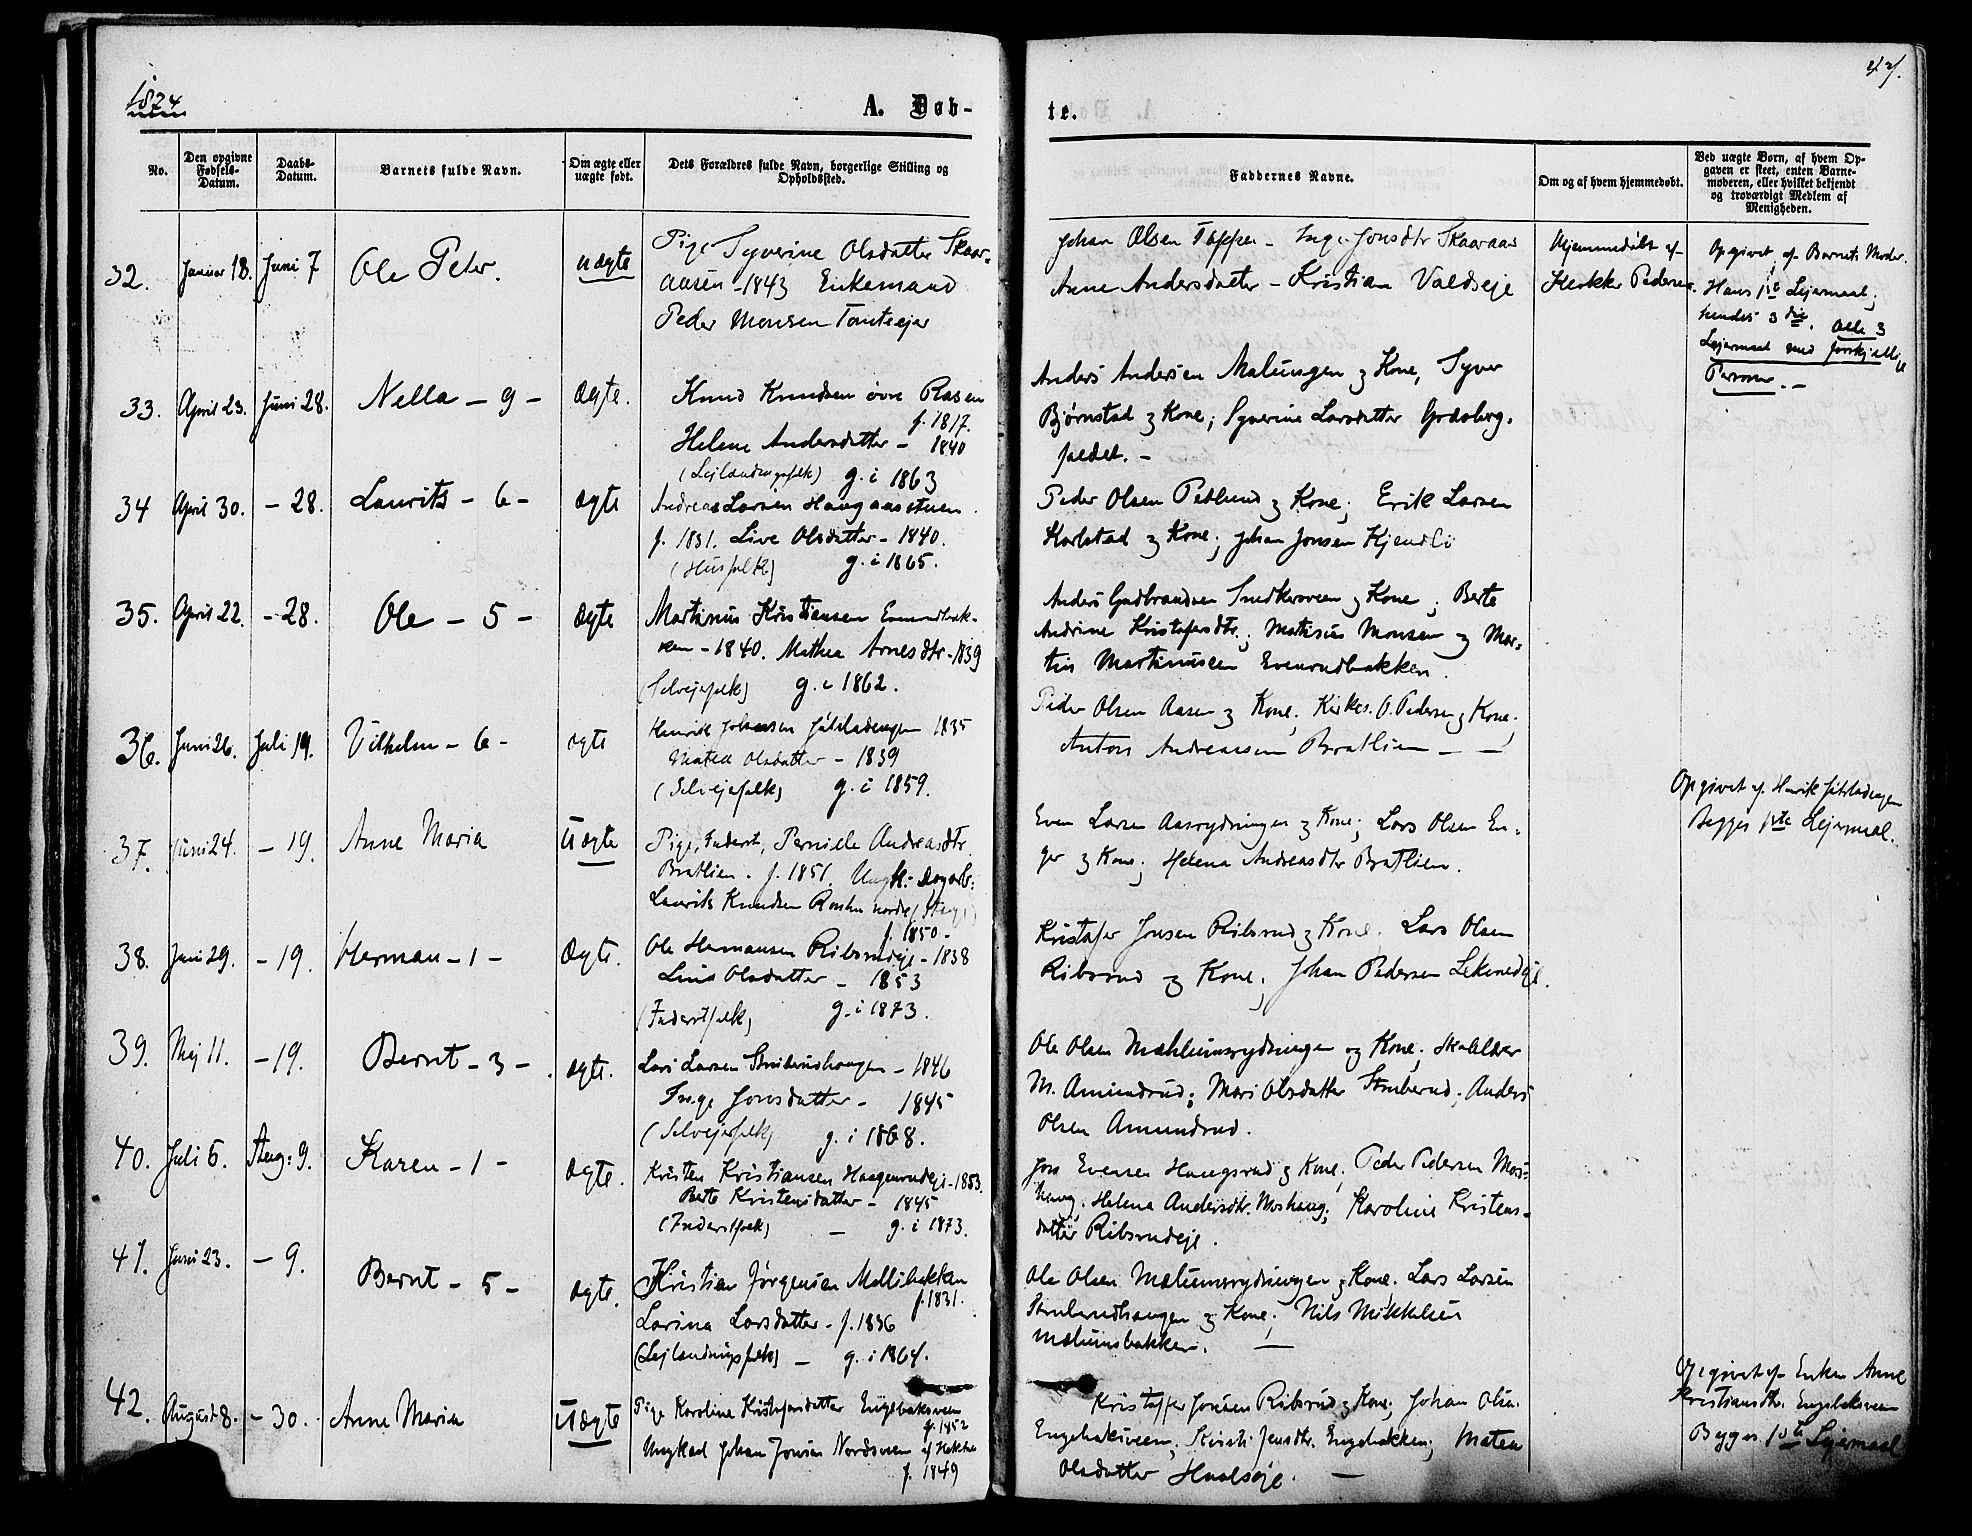 1874
A. Døb-
te.
47.
No.
Den opgivne Fødsels-Datum.
Daabs-Datum.
Barnets fulde Navn.
Om ægte eller uægte født.
Dets Forældres fulde Navn, borgerlige Stilling og Opholdssted.
Faddernes Navne.
Om og af hvem hjemmedøbt.
Ved uægte Born, af hvem Op-
gaven er skeet, enten Barne-
moderen, eller hvilket bekjendt
og troværdigt Medlem af
Menigheden.
32. Januar 18. Juni 7 Ole Peter. uægte
Pige Syverine Olsdatter Skaar-
aasen - 1843 Enkemand
Peder Monsen
Johan Olsen Tøppen - Inger Jonsdtr Skaaraas
Anne Andersdatter - Kristian Valdseje
Hjemmedøbt af
Klokker Pedersen.
Opgivet af Barnets Moder.
Hans 1ste Lejermaal;
hendes 3die. Alle 3
Lejermaal med forskjellige
Personer. -
33. April 23. Juni 28. Nella - 9 - Ægte.
Knud Knudsen øvre Rasen
f. 1817.
Helene Andersdatter - 1840
(Lejlændingsfolk) g. i 1863
Anders Andersen Malungen og Kone, Syver
Bjørnstad og Kone; Syverine Larsdatter Grøsberg-
34 April 30. - 28. Laurits - 6 - Ægte
Andreas Larsen Haugaasstuen.
f. 1831. Live Olsdatter - 1840.
(Husfolk) g. i 1865.
Peder Olsen Pedlund og Kone; Erik Larsen
Karlstad og Kone; Johan Jonsen Kjendli
35. April 22. - 28. Ole - 5 - Ægte
Martinus Kristiansen Evenrudbak-
ken - 1840. Mathea Arnesdtr - 1839
(Selvejerfolk) g. i 1862.
Anders Gudbrandsen Snedkersveen og Kone; Berte
Andrine Kristofersdtr; Mathius Monsen og Mar-
tin Martinusen Evenrudbakken.
36. Juni 26. Juli 19. Vilhelm - 6 - ægte
Henrik Johansen 1835
Matea Olsdatter - 1839
(Selvejerfolk) g. i 1859.
Peder Olsen Aasen og Kone; Kirkes. O. Pedersen og Kone;
Anton Andreassen Bratlien - -
37. Juni 24. - 19. Anne Maria Uægte
Pige, Inderst, Pernille Andreasdtr
Bratlien - f. 1851. Ungk: Dagarb:
Laurits Knudsen
f. 1850 -
Even Larsen Aasrydningen og Kone; Lars Olsen En-
ger og Kone; Helena Andreasdtr Bratlien.
Opgivet af Henrik
Begges 1ste Lejermaal.
38. Juni 29. - 19. Herman - 1 - Ægte.
Ole Hermansen Ribsrudeje - 1838
Lina Olsdatter - 1853
(Inderstfolk) g. i 1873.
Kristofer Jonsen Ribsrud og Kone. Lars Olsen
Ribsrud og Kone; Johan Pedersen
39. Maj 11. - 19. Bernt - 3 - ægte.
Lars Larsen Stuberudhaugen - 1846
Inge Jonsdatter - 1845
(Selvejerfolk) g. i 1868.
Ole Olsen Mæhlumsrydningen og Kone;
M. Amundrud; Mari Olsdatter Stuberud; Anders
Olsen Amundrud.
40. Juli 6. Aug: 9. Karen - 1 - Ægte.
Kristen Kristiansen Haagenrudeje - 1853.
Berte Kristensdatter - 1845
(Inderstfolk) - g. i 1873.
Jon Evensen Haugsrud og Kone; Peder Pedersen Mos-
haug; Helena Andersdtr. Moshaug; Karoline Kristens-
datter Ribsrudeje.
41. Juni 23. - 9. Bernt - 5 - ægte.
Kristian Jørgensen Mellibakken
f. 1831.
Larina Larsdatter - f. 1836
(Lejlændingsfolk) - g. i 1864.
Ole Olsen Mælumsrydningen og Kone. Lars Larsen
Stuberudhaugen og Kone; Nils Mikkelsen
Mælumsbakken. -
42. August 8. - 30. Anne Maria Uægte
Pige Karoline Kristofersdatter Engebaksveen
f. 1852
Ungkarl Johan Jonsen Nordsveen
f. 1849
Kristoffer Jonsen Ribsrud og Kone; Johan Olsen
Engebaksveen; Kirsti Jensdtr. Engebakken; Matea
Olsdatter
Opgivet af Enken Anne
Kristiansdtr. Engebaksveen
Begges 1ste Lejermaal